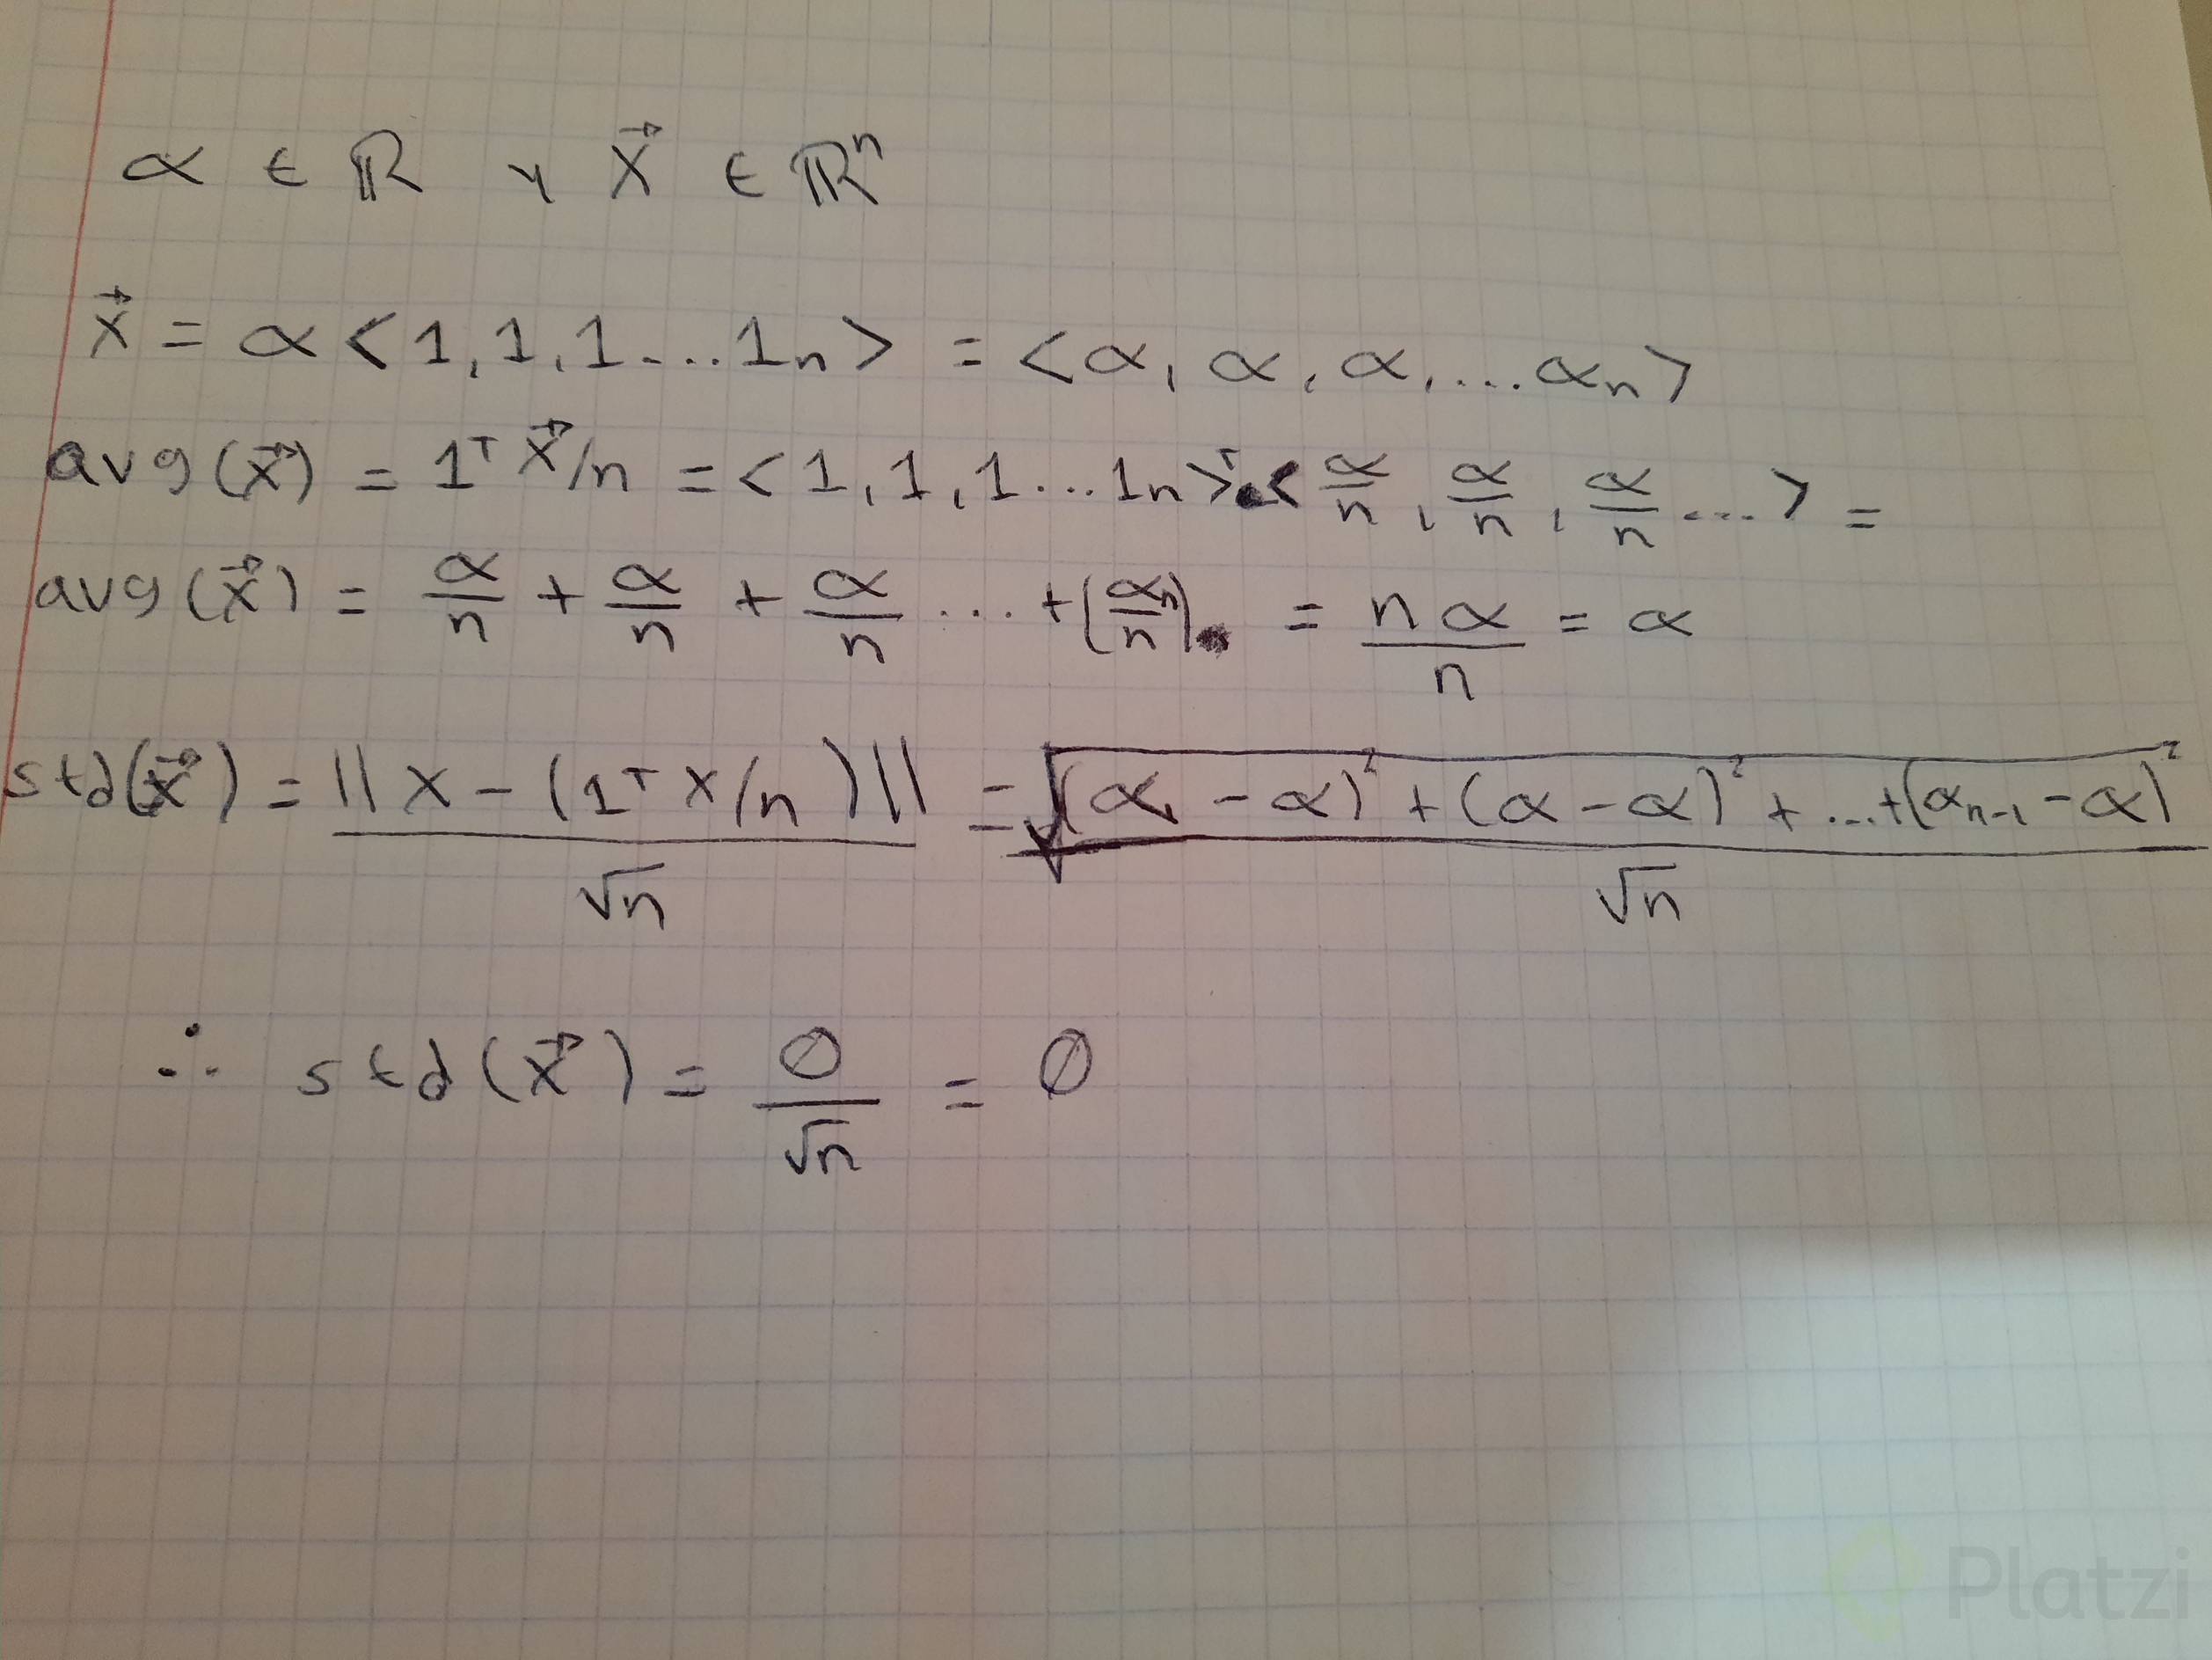 α ∈ ℝ y x⃗ ∈ ℝⁿ
x⃗ = α<1,1,1....1ₙ> = <α, α, α,...αₙ>
avg(x⃗) = 1ᵀx⃗/n = <1,1,1...1ₙ>ᵀ·<α/n, α/n, α/n ....> =
avg(x⃗) = α/n + α/n + α/n ... + (αₙ/n) = nα/n = α
std(x⃗) = ||x - (1ᵀx/n)||/√n = √((α₁ - α)² + (α - α)² + ... + (αₙ₋₁ - α)²)/√n
∴ std(x⃗) = 0/√n = 0
Platzi